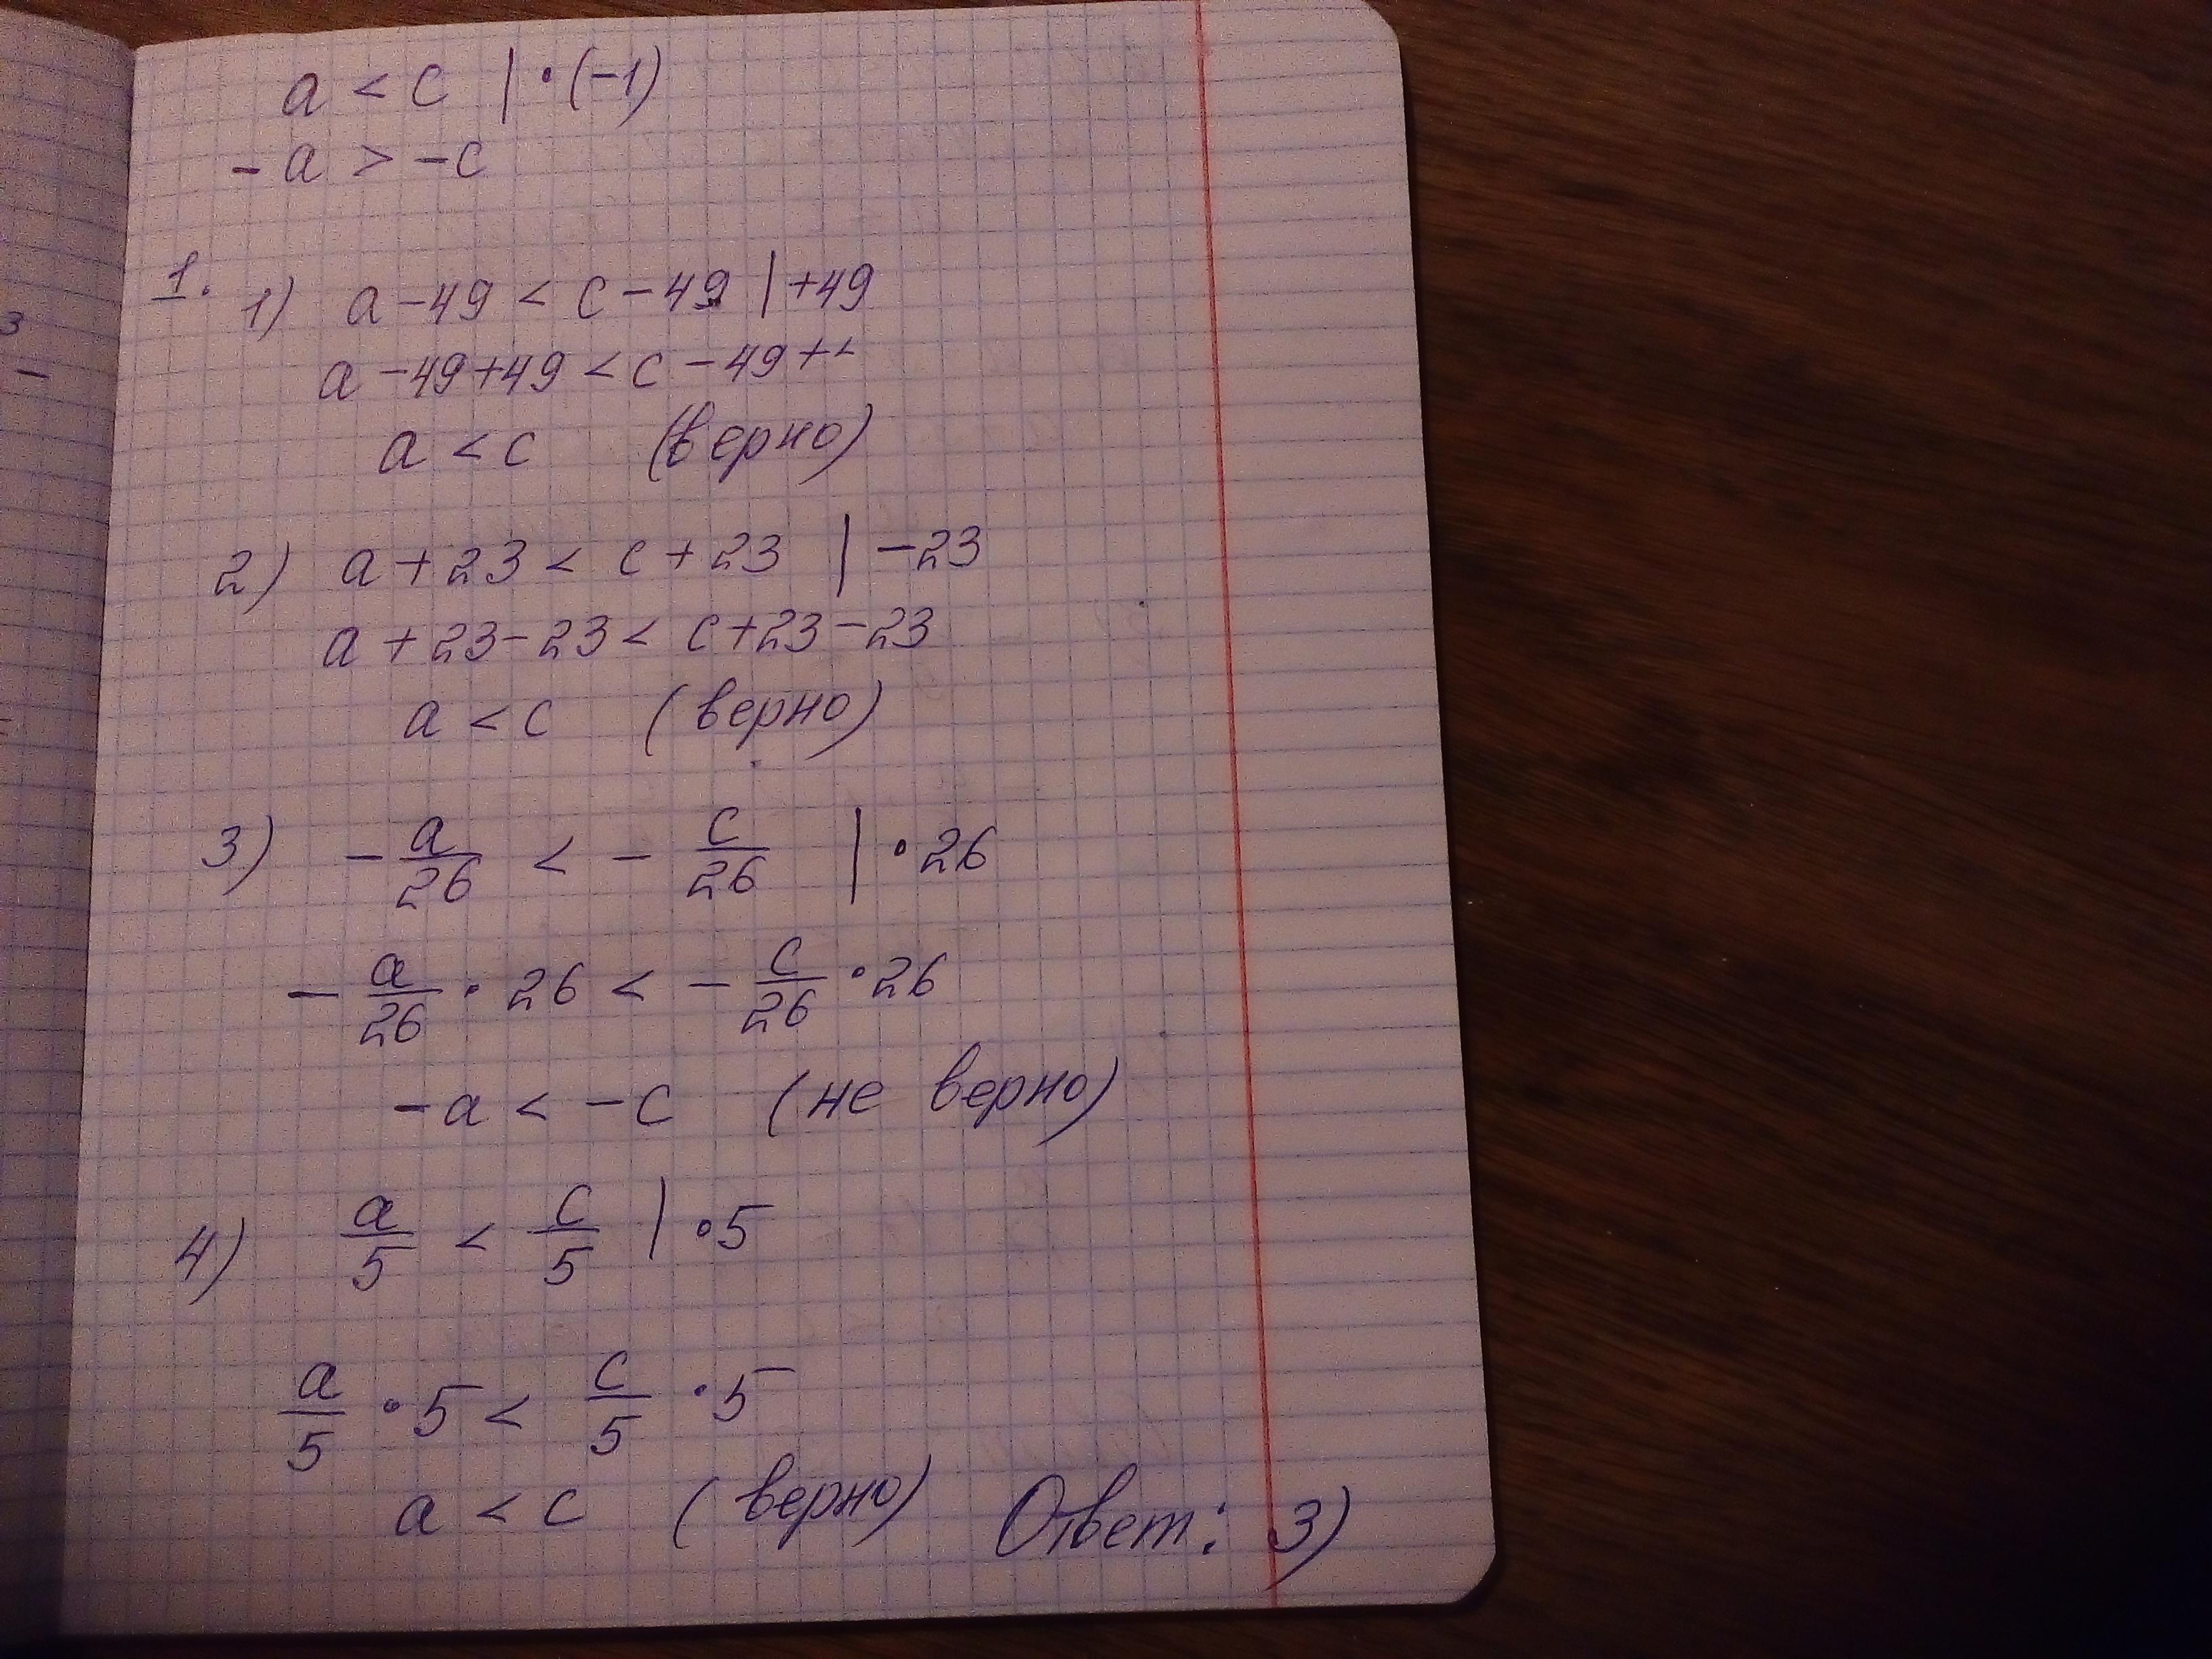 a < c | · (-1)
-a > -c
1. 1) a - 49 < c - 49 | +49
a - 49 + 49 < c - 49 +
a < c (верно)
2) a + 23 < c + 23 | -23
a + 23 - 23 < c + 23 - 23
a < c (верно)
3) - a/26 < - c/26 | · 26
- a/26 · 26 < - c/26 · 26
-a < -c (не верно)
4) a/5 < c/5 | · 5
a/5 · 5 < c/5 · 5
a < c (верно) Ответ: 3)